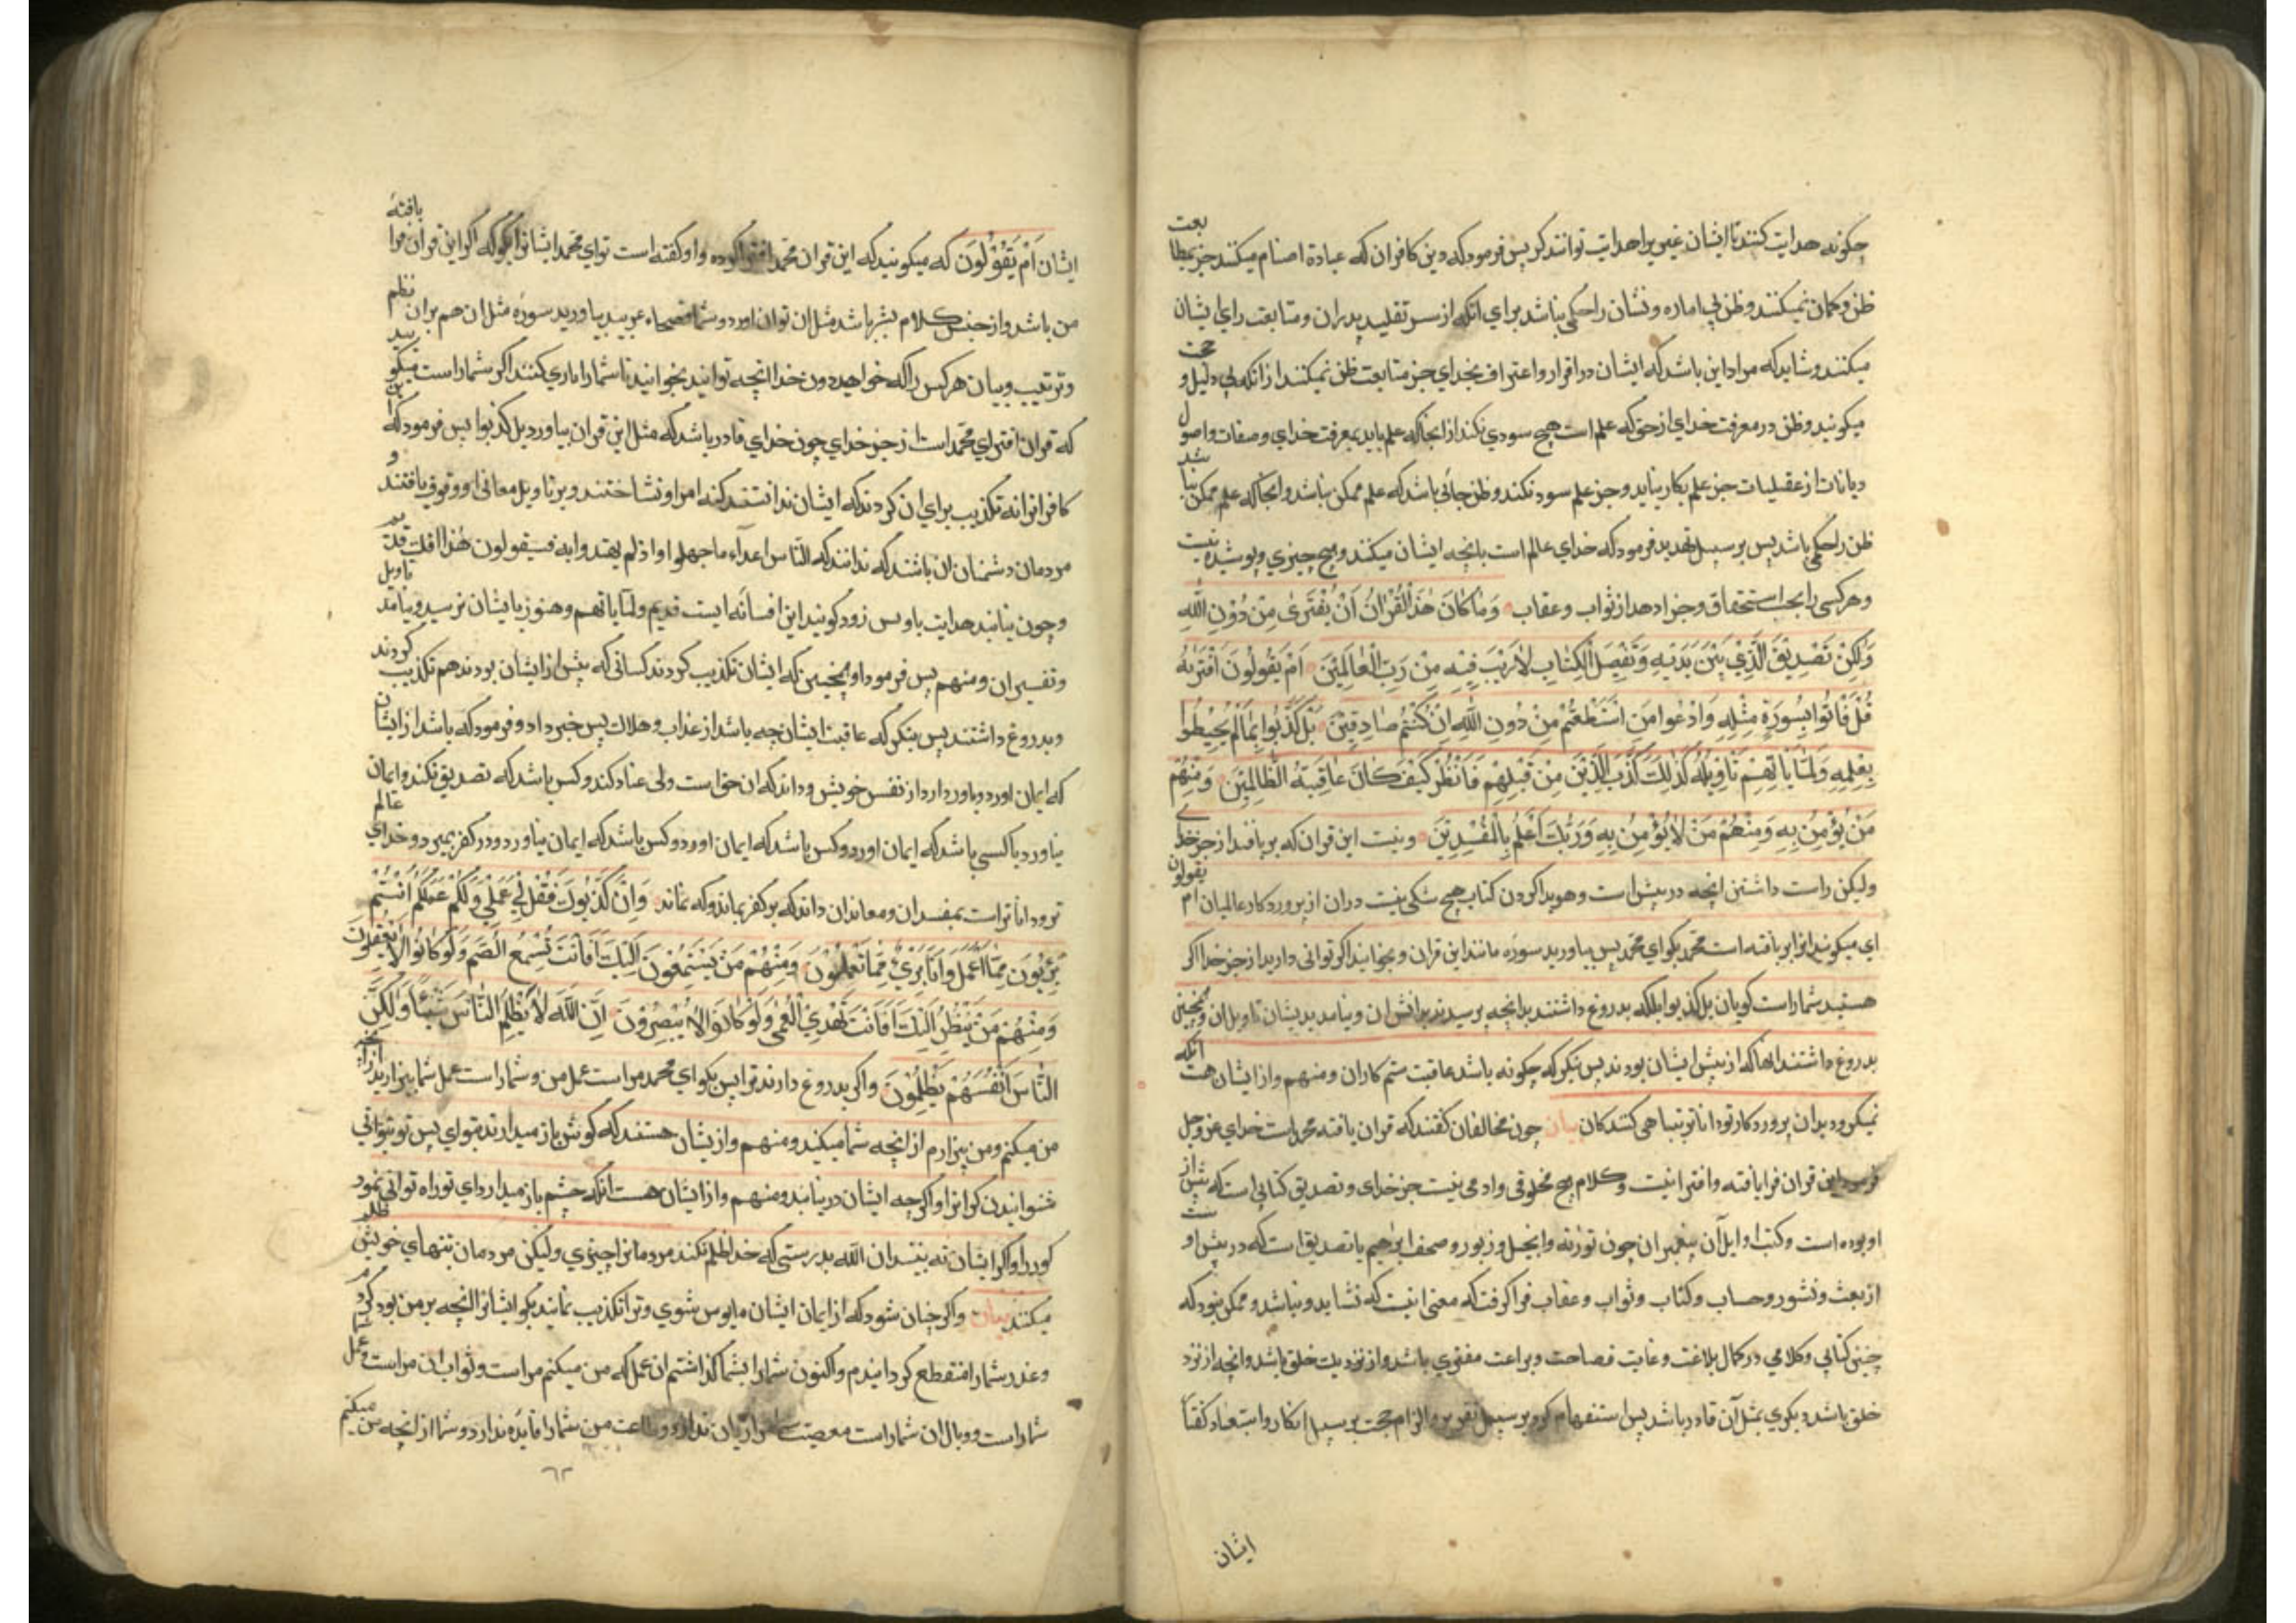 چکونه هدایت کنند تا ایشان غیر را هدایت توانند کر پس فرمود که دین کافران که عبادة اصنام میکنند جز بمطا بعت
ظن و کمان نمیکنند و ظن بی اماره و نشان را حکمی نباشد برای انکه از سر تقلید پدران و متابعت رای ایشان
میکنند و شاید که مراد این باشد که ایشان در اقرار و اعتراف بخدای جز متابعت ظن نمیکنند از انکه بی دلیل و حجت
میکونید و ظن در معرفت خدای از حق که علم است هیچ سودی نکند از انجا که علم باید بمعرفت خدای و صفات و اصول
دیانات از عقلیات جز علم بکار نیاید و جز علم سود نکند و ظن جائی باشد که علم ممکن نباشد و انجا که علم ممکن نبا شد
ظن را حکمی باشد پس بر سبیل تهدید فرمود که خدای عالم است بانچه ایشان میکنند و هیچ چیزی پوشیده نیست
و هر کسی را بحسب استحقاق و جزا دهد از ثواب و عقاب وَمَا كَانَ هٰذَا الْقُرْاٰنُ اَنْ يُفْتَرَىٰ مِنْ دُوْنِ اللّٰهِ
وَلٰكِنْ تَصْدِيْقَ الَّذِيْ بَيْنَ يَدَيْهِ وَتَفْصِيْلَ الْكِتَابِ لَا رَيْبَ فِيْهِ مِنْ رَبِّ الْعَالَمِيْنَ اَمْ يَقُوْلُوْنَ افْتَرٰيهُ
قُلْ فَأْتُوْا بِسُوْرَةٍ مِثْلِهِ وَادْعُوْا مَنِ اسْتَطَعْتُمْ مِنْ دُوْنِ اللّٰهِ اِنْ كُنْتُمْ صَادِقِيْنَ بَلْ كَذَّبُوْا بِمَا لَمْ يُحِيْطُوْا
بِعِلْمِهِ وَلَمَّا يَأْتِهِمْ تَأْوِيْلُهُ كَذٰلِكَ كَذَّبَ الَّذِيْنَ مِنْ قَبْلِهِمْ فَانْظُرْ كَيْفَ كَانَ عَاقِبَةُ الظَّالِمِيْنَ وَمِنْهُمْ
مَنْ يُؤْمِنُ بِهِ وَمِنْهُمْ مَنْ لَا يُؤْمِنُ بِهِ وَرَبُّكَ اَعْلَمُ بِالْمُفْسِدِيْنَ و نیست این قران که بر بافند از جز خدای
ولیکن راست داشتن انچه در پیش است و هویدا کردن کتاب هیچ شکی نیست دران از پروردکار عالمیان ام یقولون
ای میکونید انرا بر بافته است محمد بکو ای محمد پس بیاورید سورۀ مانند این قران و بخوانید اکر توانی دارید از جز خدا اکر
هستید شما راست کویان بل کذبوا بلکه بدروغ داشتند بدانچه نرسیدند بدانش ان و نیامد بدیشان تاویل ان و همچنین
بدروغ داشتند انها که از پیش ایشان بودند پس بنکر که چکونه باشد عاقبت ستم کاران و منهم و از ایشان هست انکه
نمیکرود بدان پروردکار تو داناتر بتباهی کنندکان بیان چون مخالفان کفتند که قران بافته محمد است خدای عز وجل
فرمود این قران فرا بافته و افترا نیست و کلام هیچ مخلوقی و ادمی نیست جز خدای و تصدیق کتابی است که پیش از
او بوده است و کتب اوایل آن پیغمبران چون تورٰیة و انجیل و زبور و صحف ابرٰهیم یا تصدیق است که در پیش او ست
از بعث و نشور و حساب و کتاب و ثواب و عقاب فرا کرفت که معنی انیست که نشاید و نباشد و ممکن نبود که
چنین کتابی و کلامی در کمال بلاغت و غایت فصاحت و براعت مفتری باشد و از نزدیک خلق باشد و انچه از نزد
خلق باشد دیکری بمثل آن قادر باشد پس استفهام کرد بر سبیل تقریر و الزام حجت بر سبیل انکار و استبعاد کفتا
ایشان
ایشان اَمْ يَقُوْلُوْنَ که میکونید که این قران محمد افترا کرده و او کفته است تو ای محمد ایشانرا بکو که اکر این قران فرا بافتۀ
من باشد و از جنس کلام بشر باشد مثل ان توان اورد و شما فصحاء عربید بیاورید سورۀ مثل ان هم بران نظم
و ترتیب و بیان هر کس را که خواهید دون خدا انچه توانید بخوانید تا شما را یاری کنند اکر شما راست میکو یید
که قران افترای محمد است از جز خدای چون خدای قادر باشد که مثل این قران بیاورد بل کذبوا پس فرمود که این
کافرانرا نه تکذیب برای ان کردند که ایشان ندانستند کنه امر او نشناختند و بر تاویل معانی او وقوف نیافتند و
مردمان دشمنان ان باشند که ندانند که الناس اعداء ما جهلوا واذ لم یهتدوا به فسیقولون هٰذا افک قدیم
و چون نیابند هدایت باو پس زود کویند این افسانه ایست قدیم ولما یاتهم و هنوز بایشان نرسید و نیامد تاویل
و تفسیر ان و منهم پس فرمود او همچنین که ایشان تکذیب کردند کسانی که پیش از ایشان بودند هم تکذیب کردند
و بدروغ داشتند پس بنکر که عاقبت ایشان چه باشد از عذاب و هلاک پس خبر داد و فرمود که باشد از ایشا ن
که ایمان اورد و باور دارد از نفس خویش و داند که ان حق است ولی عناد کند و کس باشد که تصدیق نکند و ایمان
نیاورد یا کسی باشد که ایمان اورد و کس باشد که ایمان اورد و کس باشد که ایمان نیاورد و در کفر بمیرد و خدای عالم
تر و داناتر است بمفسدان و معاندان داند که بر کفر بماند و که نماند وَاِنْ كَذَّبُوْكَ فَقُلْ لِيْ عَمَلِيْ وَلَكُمْ عَمَلُكُمْ اَنْتُمْ
بَرِيْئُوْنَ مِمَّا اَعْمَلُ وَاَنَا بَرِيْءٌ مِمَّا تَعْمَلُوْنَ وَمِنْهُمْ مَنْ يَسْتَمِعُوْنَ اِلَيْكَ اَفَاَنْتَ تُسْمِعُ الصُّمَّ وَلَوْ كَانُوْا لَا يَعْقِلُوْنَ
وَمِنْهُمْ مَنْ يَنْظُرُ اِلَيْكَ اَفَاَنْتَ تَهْدِي الْعُمْيَ وَلَوْ كَانُوْا لَا يُبْصِرُوْنَ اِنَّ اللّٰهَ لَا يَظْلِمُ النَّاسَ شَيْئًا وَلٰكِنَّ
النَّاسَ اَنْفُسَهُمْ يَظْلِمُوْنَ و اکر بدروغ دارند ترا پس بکو ای محمد مراست عمل من و شما راست عمل شما بیزارید از انچه
من میکنم و من بیزارم از انچه شما میکنید و منهم و از یشان هستند که کوش باز میدارند بتو ای پس تو توانی
شنوانیدن کرانرا و اکرچه ایشان در نیابند و منهم و از ایشان هست انکه چشم باز میدارد ای تو راه توانی نمود
کوررا و اکر ایشان نه بینند ان الله بدرستی که خدا ظلم نکند مردمانرا چیزی ولیکن مردمان بتنهای خویش ظلم
میکنند بیان و اکر چنان شود که از ایمان ایشان مایوس شوی و ترا تکذیب نمایند بکو ایشانرا انچه بر من بود کردم
و عذر شما را منقطع کردانیدم و اکنون شما را بشما کذاشتم ان عمل که من میکنم مراست و ثواب ان مراست و عمل شما
شما راست و وبال ان شما راست معصیت شما مرا زیان ندارد و طاعت من شما را فایده ندارد و شما از انچه من میکنم
٦٢